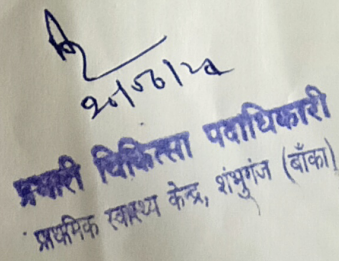 20/06/22
प्रभारी चिकित्सा पदाधिकारी
प्राथमिक स्वास्थ्य केन्द्र, शंभुगंज (बाँका)